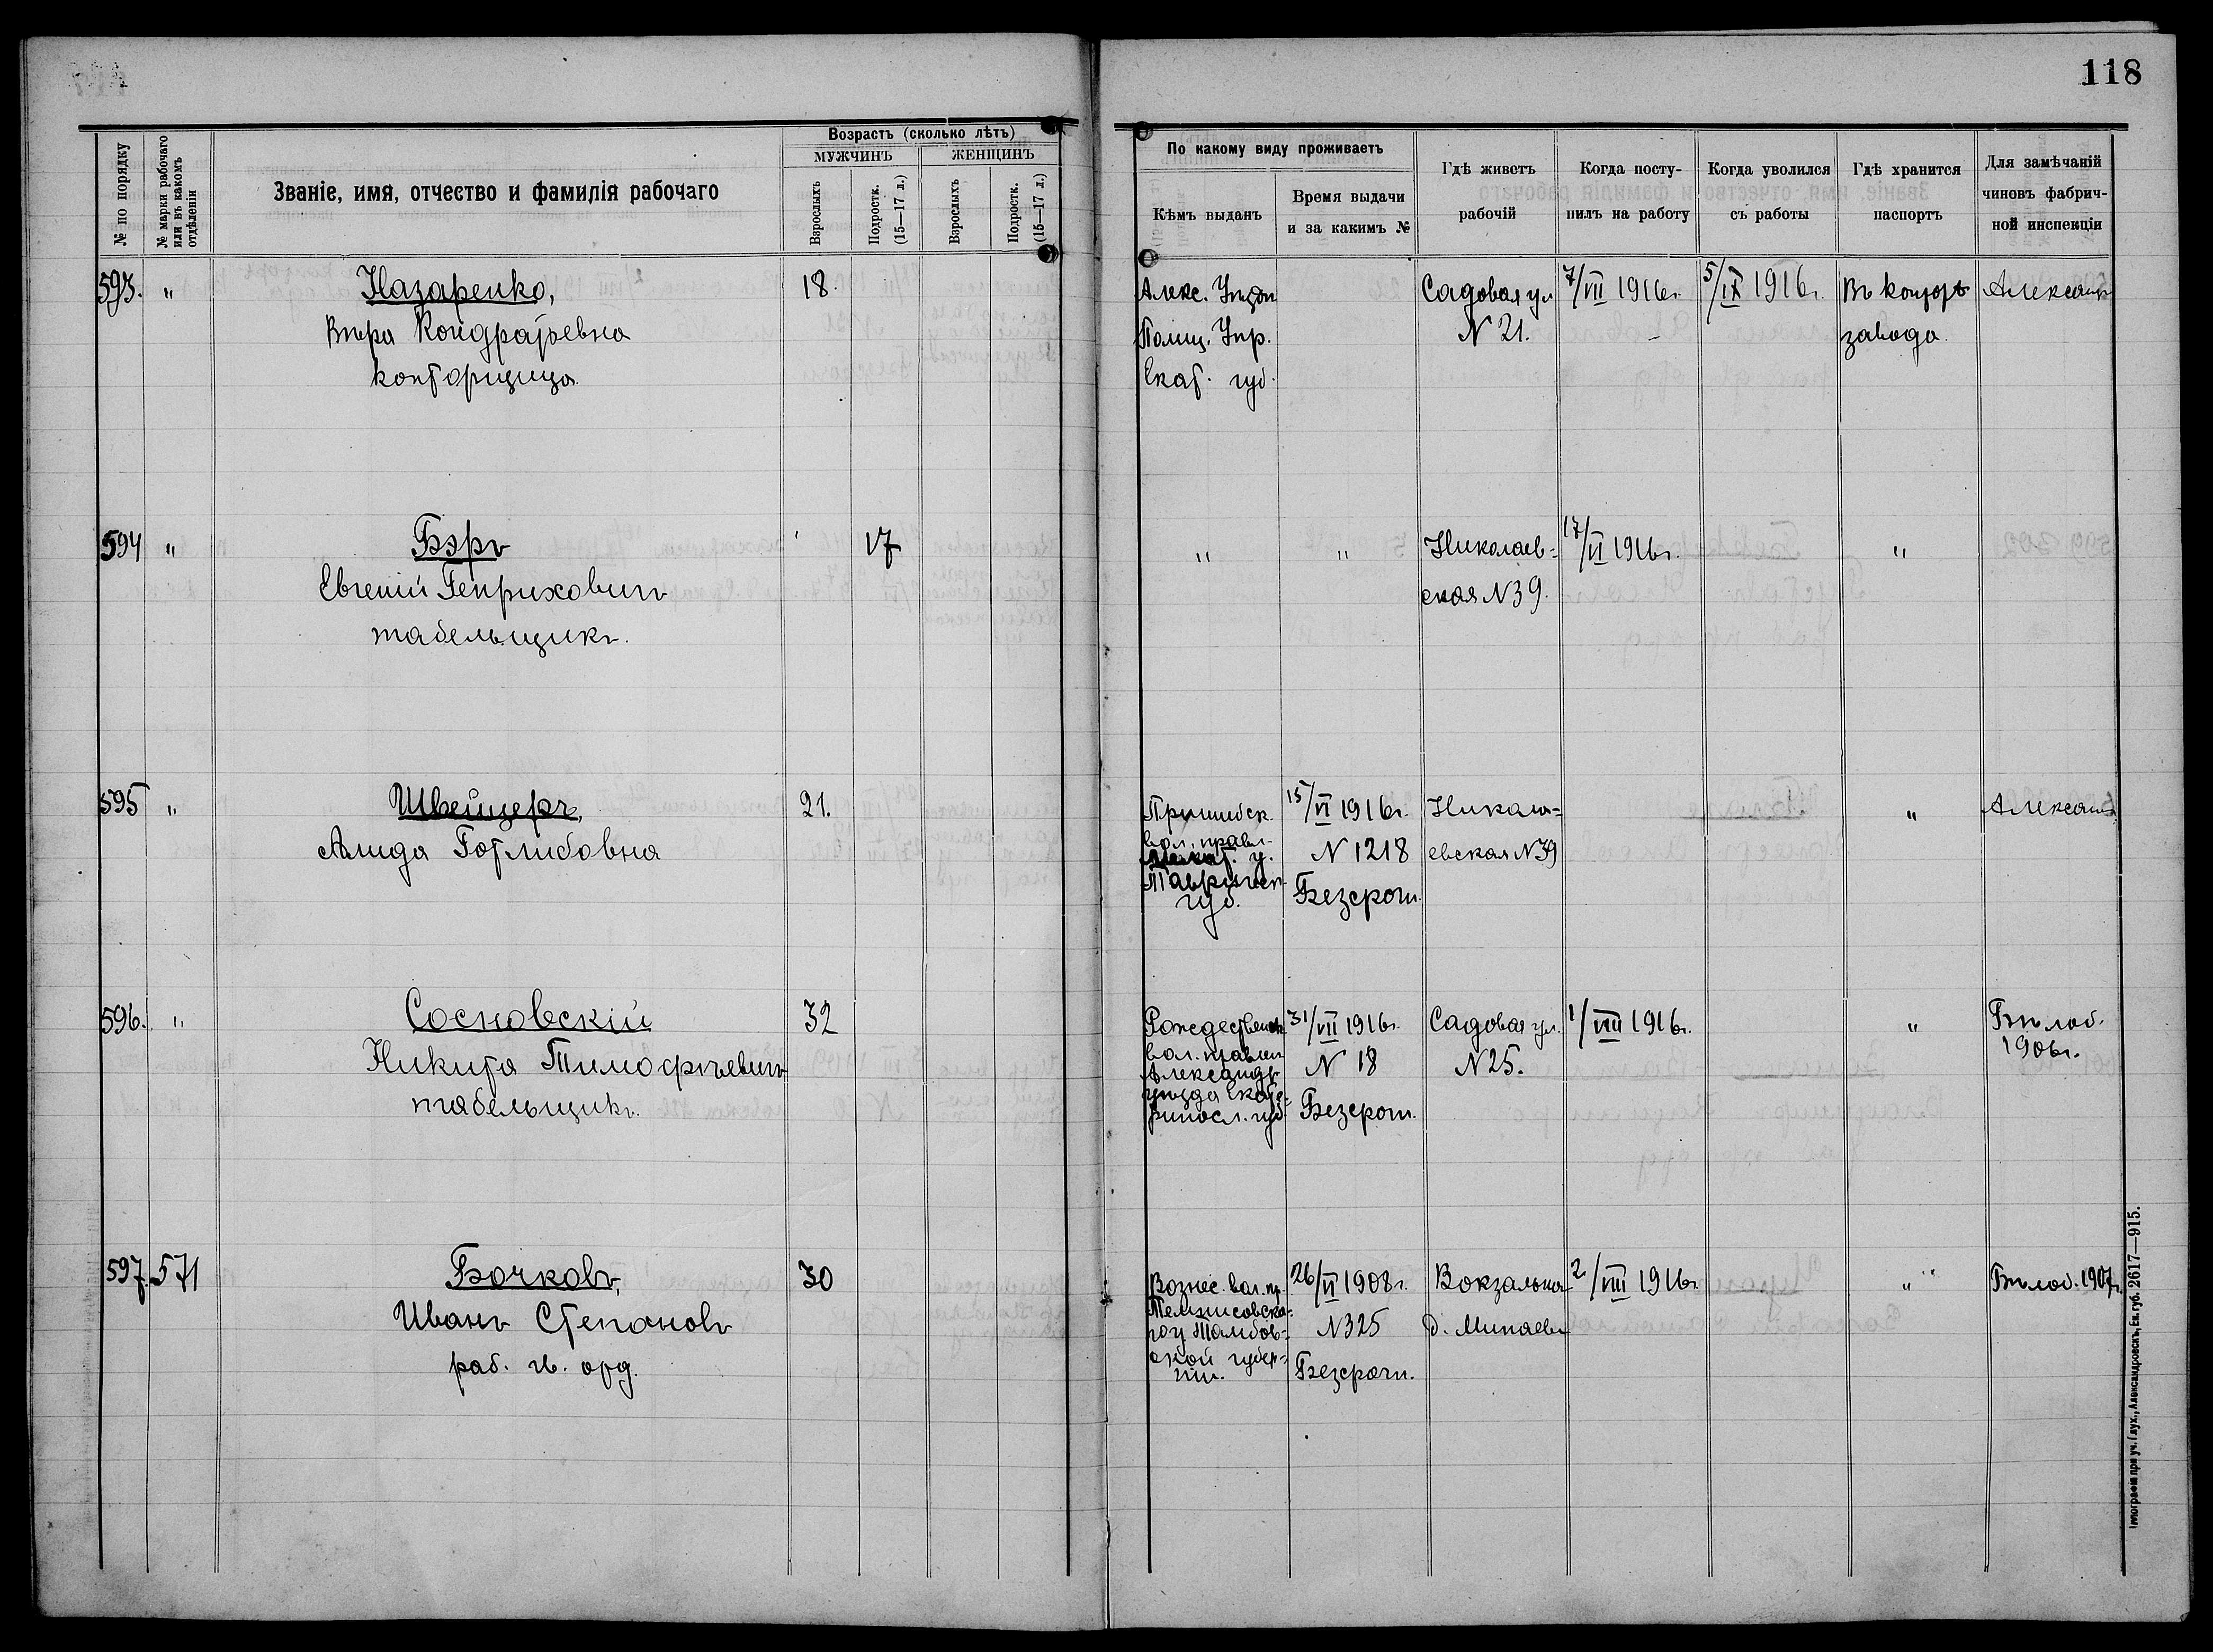 118
№ по порядку
№ марки рабочаго или въ какомъ отдѣленіи
Званіе, имя, отчество и фамилія рабочаго
Возрастъ (сколько лѣтъ)
МУЖЧИНЪ
ЖЕНЩИНЪ
Взрослыхъ
Подростк. (15—17 л.)
Взрослыхъ
Подростк. (15—17 л.)
По какому виду проживаетъ
Кѣмъ выданъ
Время выдачи
и за какимъ №
Гдѣ живетъ
рабочій
Когда посту-
пилъ на работу
Когда уволился
съ работы
Гдѣ хранится
паспортъ
Для замѣчаній
чиновъ фабрич-
ной инспекціи
593. " Назаренко, 18
Вѣра Кондратьевна
конторщица
Алекс. Уѣздн
Полиц. Упр.
Екат. губ.
Садовая ул
N 21.
7/VII 1916г.
5/IX 1916г.
Въ конторѣ
завода
Александ
594 " Бэръ 17
Евгеній Генриховичъ
табельщикъ.
" "
Николаев=
ская N39.
17/VI 1916г.
"
595 " Швейцеръ, 21.
Алида Готлибовна
Пришибск
вол. правл.
у.
Тавричек
губ.
15/VI 1916г.
N 1218
Безсрочн.
Никола=
евская N39
"
Александ
596. " Сосновскій 32
Никита Тимофѣевичъ
табельщикъ.
Рождественск
вол. правлен
Александр
уѣзда Екате=
ринос. губ
31/VII 1916г.
N 18
Безсрочн.
Садовая ул.
N25.
1/VIII 1916г.
"
Бѣлоб.
1906г.
597. 571 Бочковъ, 30
Иванъ Степановъ
раб. чв. орд.
Вознес. вол. пр.
гоу Тамбов=
ской губер=
ніи.
26/VI 1908г.
N325
Безсрочн.
Вокзальная
д. Минаева
2/VIII 1916г.
"
Бѣлоб. 1907г.
Типографія при уч. Глух., Александровскъ, Ек. губ. 2617—915.